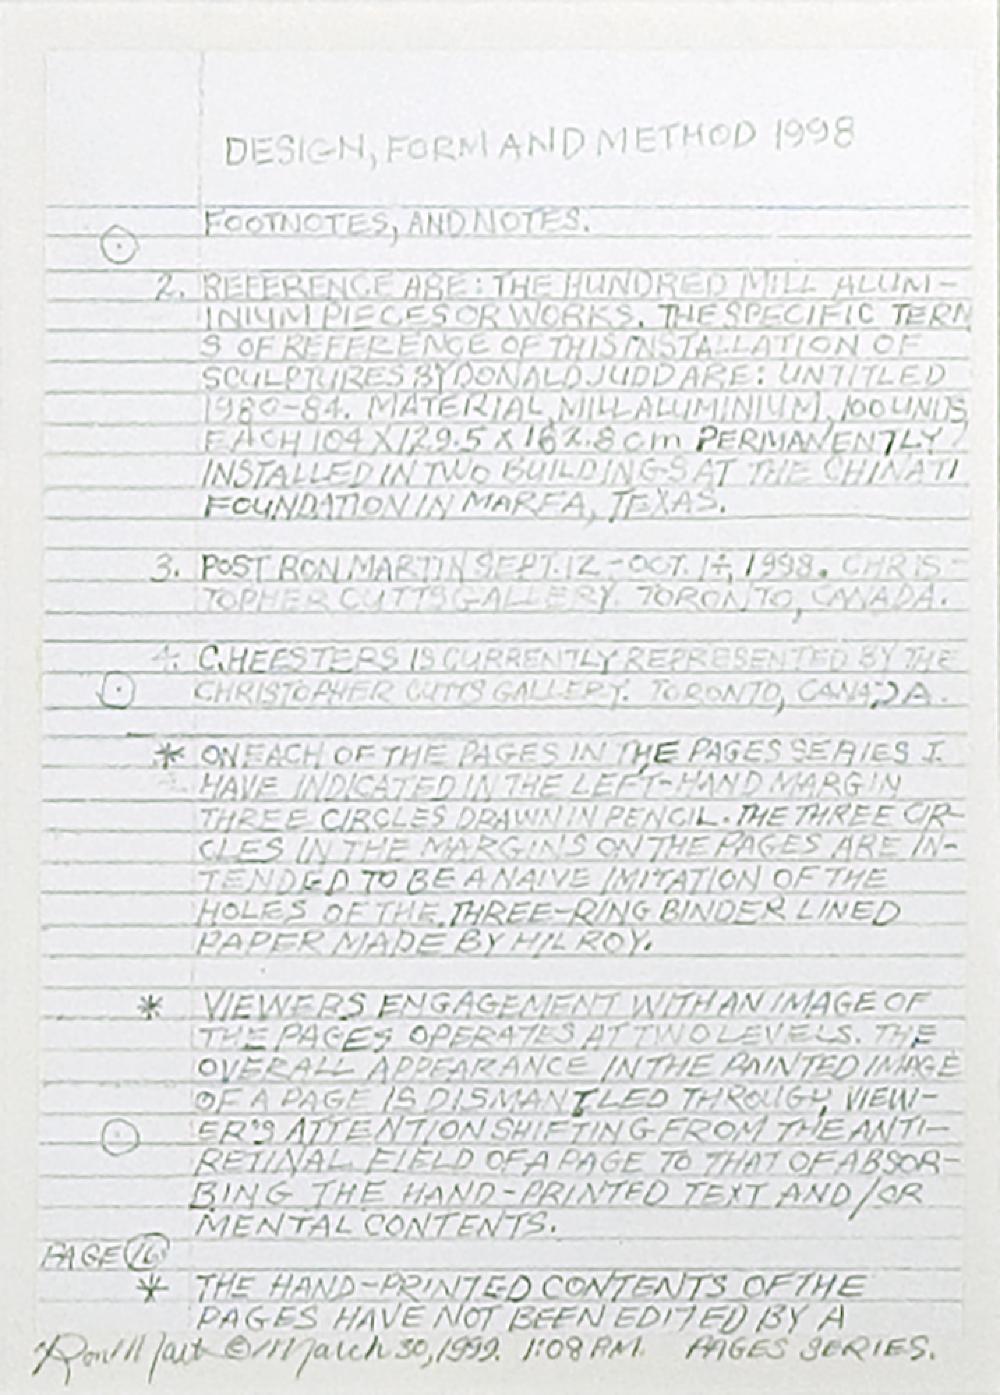 DESIGN, FORM AND METHOD 1998
FOOTNOTES, AND NOTES.
2. REFERENCE ARE: THE HUNDRED MILL ALUM-
INIUM PIECES OR WORKS. THE SPECIFIC TERM
S OF REFERENCE OF THIS INSTALLATION OF
SCULPTURES BY DONALD JUDD ARE: UNTITLED
1980-84. MATERIAL, MILL ALUMINIUM, 100 UNITS,
EACH 104 X 129.5 X 162.8 cm PERMANENTLY
INSTALLED IN TWO BUILDINGS AT THE CHINATI
FOUNDATION IN MARFA, TEXAS.
3. POST RON MARTIN SEPT. 12 - OCT. 14, 1998. CHRIS-
TOPHER CUTTS GALLERY. TORONTO, CANADA.
4. C. HEESTERS IS CURRENTLY REPRESENTED BY THE
CHRISTOPHER CUTTS GALLERY. TORONTO, CANADA.
* ON EACH OF THE PAGES IN THE PAGES SERIES I
HAVE INDICATED IN THE LEFT-HAND MARGIN
THREE CIRCLES DRAWN IN PENCIL. THE THREE CIR-
CLES IN THE MARGINS ON THE PAGES ARE IN-
TENDED TO BE A NAIVE IMITATION OF THE
HOLES OF THE THREE-RING BINDER LINED
PAPER MADE BY HILROY.
* VIEWERS ENGAGEMENT WITH AN IMAGE OF
THE PAGES OPERATES AT TWO LEVELS. THE
OVERALL APPEARANCE IN THE PAINTED IMAGE
OF A PAGE IS DISMANTLED THROUGH, VIEW-
ER'S ATTENTION SHIFTING FROM THE ANTI-
RETINAL FIELD OF A PAGE TO THAT OF ABSOR-
BING THE HAND-PRINTED TEXT AND/OR
MENTAL CONTENTS.
PAGE 16
* THE HAND-PRINTED CONTENTS OF THE
PAGES HAVE NOT BEEN EDITED BY A
Ron Mart © March 30, 1999. 1:08 P.M. PAGES SERIES.